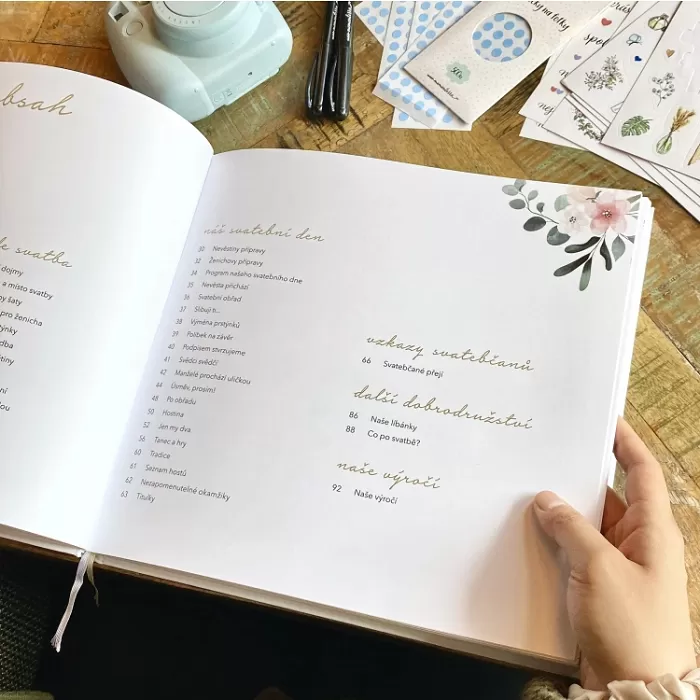 bsah
svatba
dojmy
a místo svatby
šaty
pro ženicha
náš svatební den
30 Nevěstiny přípravy
32 Ženichovy přípravy
34 Program našeho svatebního dne
35 Nevěsta přichází
36 Svatební obřad
37 Slibuji ti...
38 Výměna prstýnků
39 Polibek na závěr
40 Podpisem stvrzujeme
41 Svědci svědčí
42 Manželé prochází uličkou
44 Úsměv, prosím!
48 Po obřadu
50 Hostina
52 Jen my dva
56 Tanec a hry
60 Tradice
61 Seznam hostů
62 Nezapomenutelné okamžiky
63 Titulky
vzkazy svatebčanů
66 Svatebčané přejí
další dobrodružství
86 Naše líbánky
88 Co po svatbě?
naše výročí
92 Naše výročí